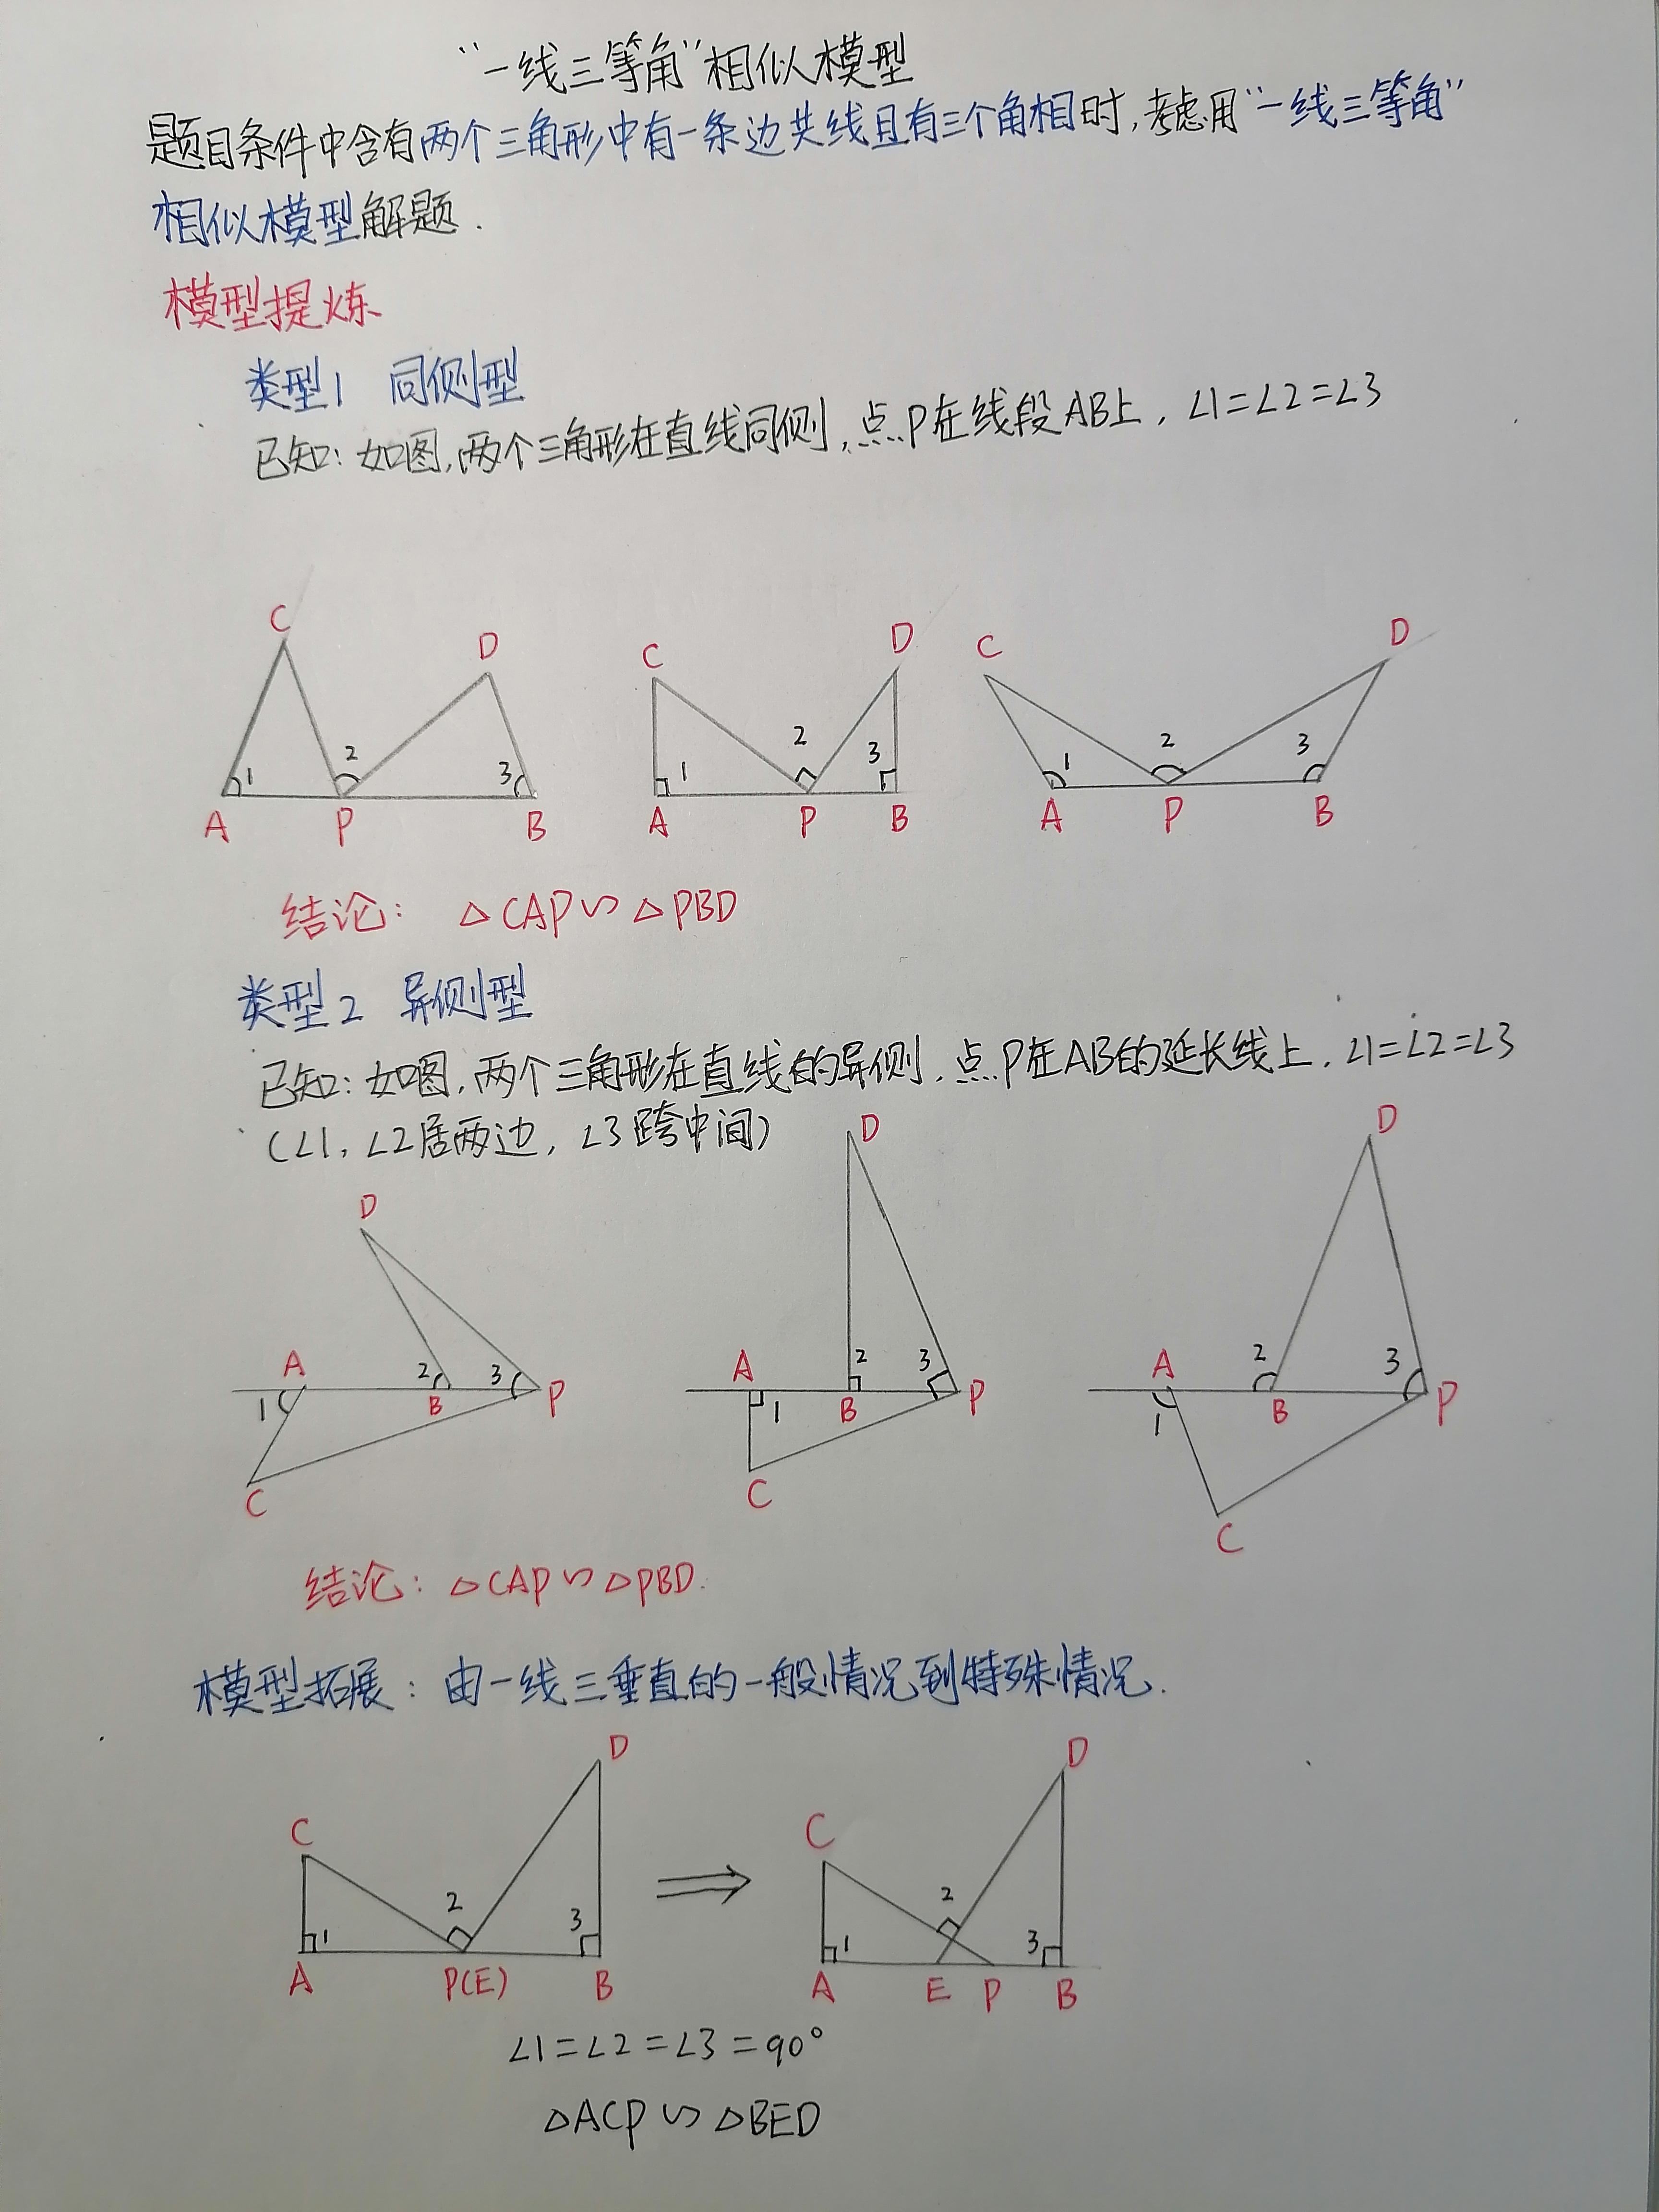 “一线三等角”相似模型
题目条件中含有两个三角形中有一条边共线且有三个角相时,考虑用“一线三等角”
相似模型解题.
模型提炼
类型1 同侧型
已知:如图,两个三角形在直线同侧,点P在线段AB上,∠1=∠2=∠3
C D
1 2 3
A P B
C D
1 2 3
A P B
C D
1 2 3
A P B
结论: △CAP∽△PBD
类型2 异侧型
已知:如图,两个三角形在直线的异侧,点P在AB的延长线上,∠1=∠2=∠3
(∠1,∠2居两边,∠3跨中间)
D
A 2 3
1 B P
C
D
A 2 3
1 B P
C
D
A 2 3
1 B P
C
结论:△CAP∽△PBD.
模型拓展:由一线三垂直的一般情况到特殊情况.
C D
1 2 3
A P(E) B
⇒
C D
1 2 3
A E P B
∠1=∠2=∠3=90°
△ACP∽△BED